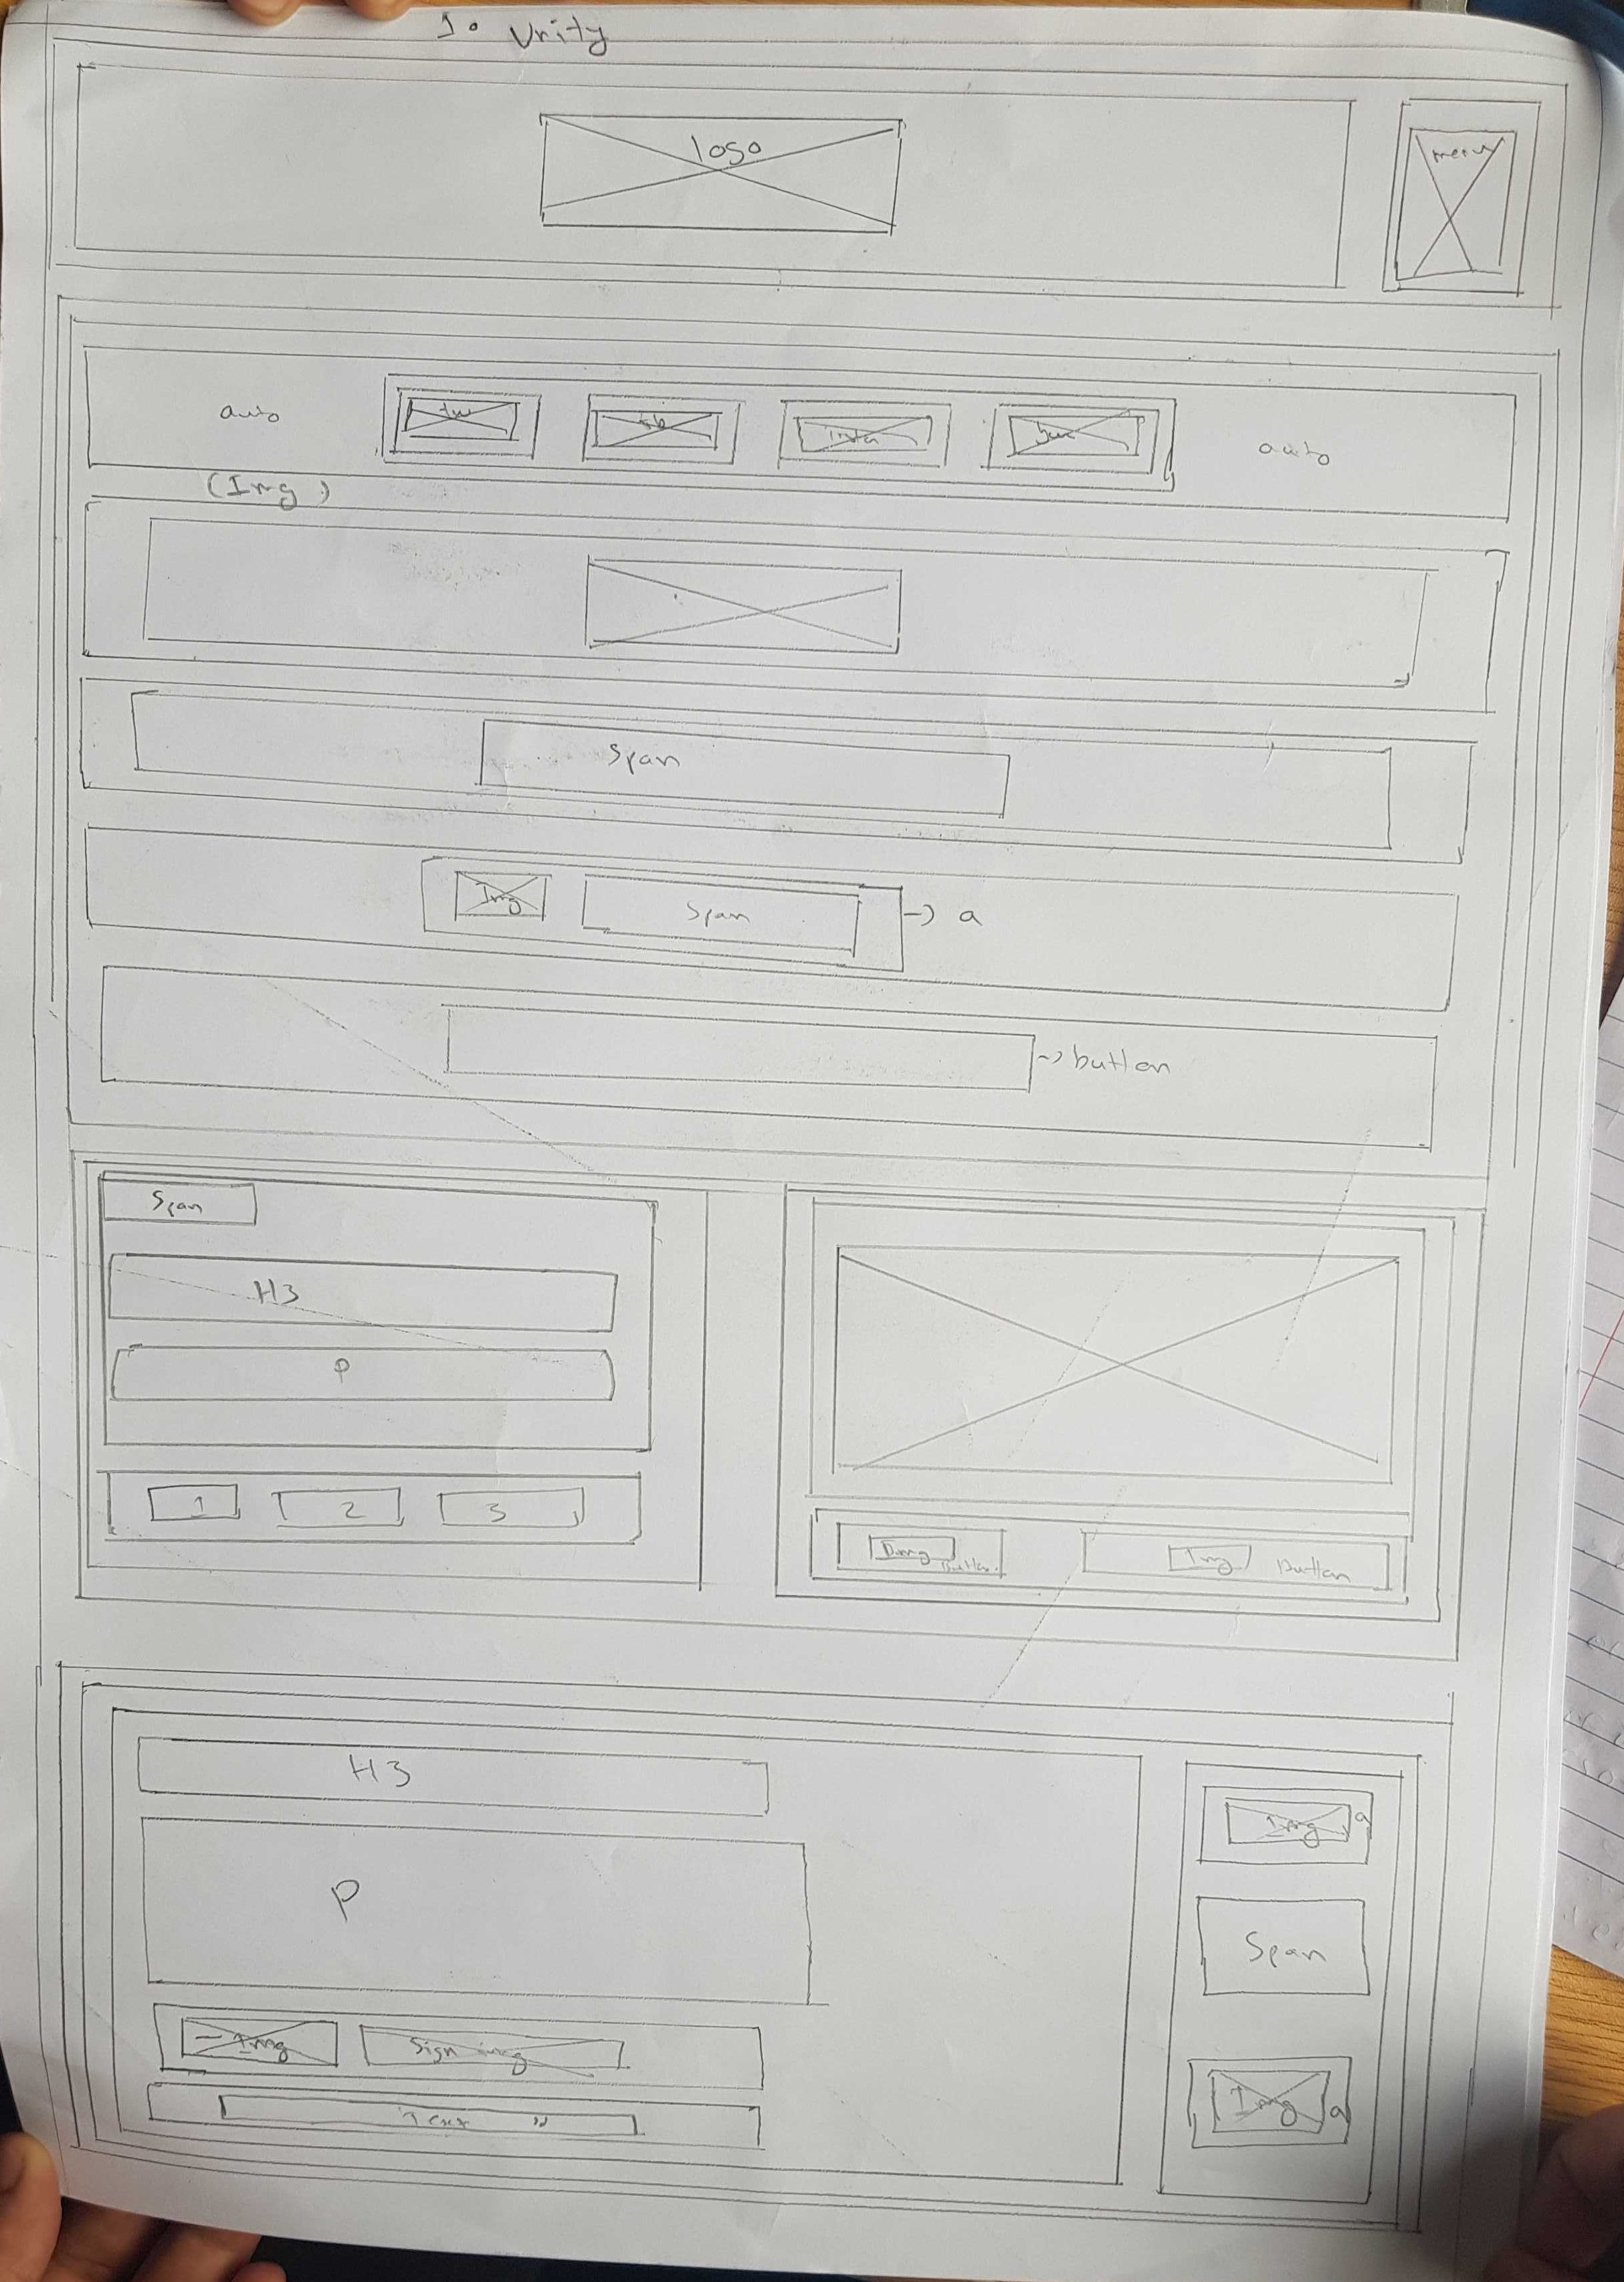 1. Unity
logo
menu
auto
tw
fb
insta
auto
(Img)
Span
Img
Span
→ a
→ button
Span
H3
P
1
2
3
Img
button
Img
button
H3
P
Img
a
Span
Img
Sign img
Img
a